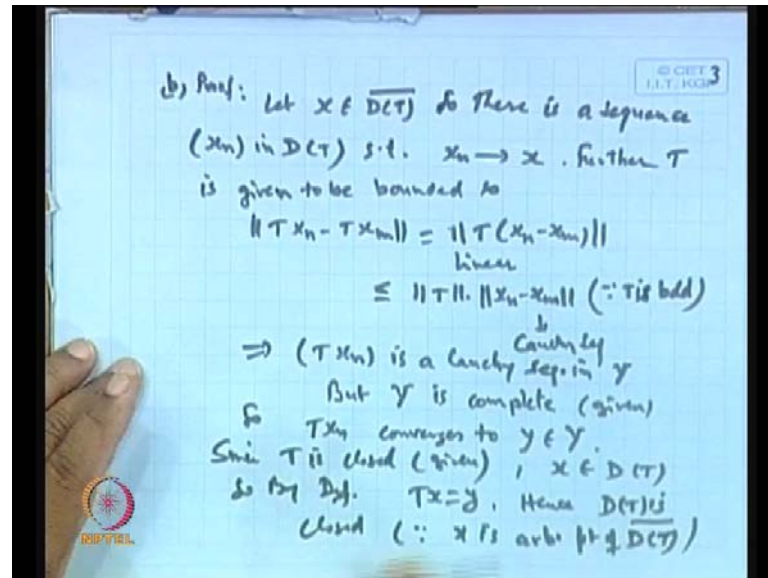 © CET
I.I.T. KGP
3
b) Proof: Let x ∈ \overline{D(T)} So there is a sequence
(xn) in D(T) s.t. xn → x. Further T
is given to be bounded so
||Txn - Txm|| = ||T(xn-xm)||
Linear
≤ ||T||. ||xn-xm|| (∵ T is bdd)
↓
Cauchy seq
⇒ (Txn) is a Cauchy seq. in Y
But Y is complete (given)
So Txn converges to y ∈ Y.
Since T is closed (given), x ∈ D(T)
So By Def. Tx=y. Hence D(T) is
closed (∵ x is arb. pt of \overline{D(T)})
NPTEL